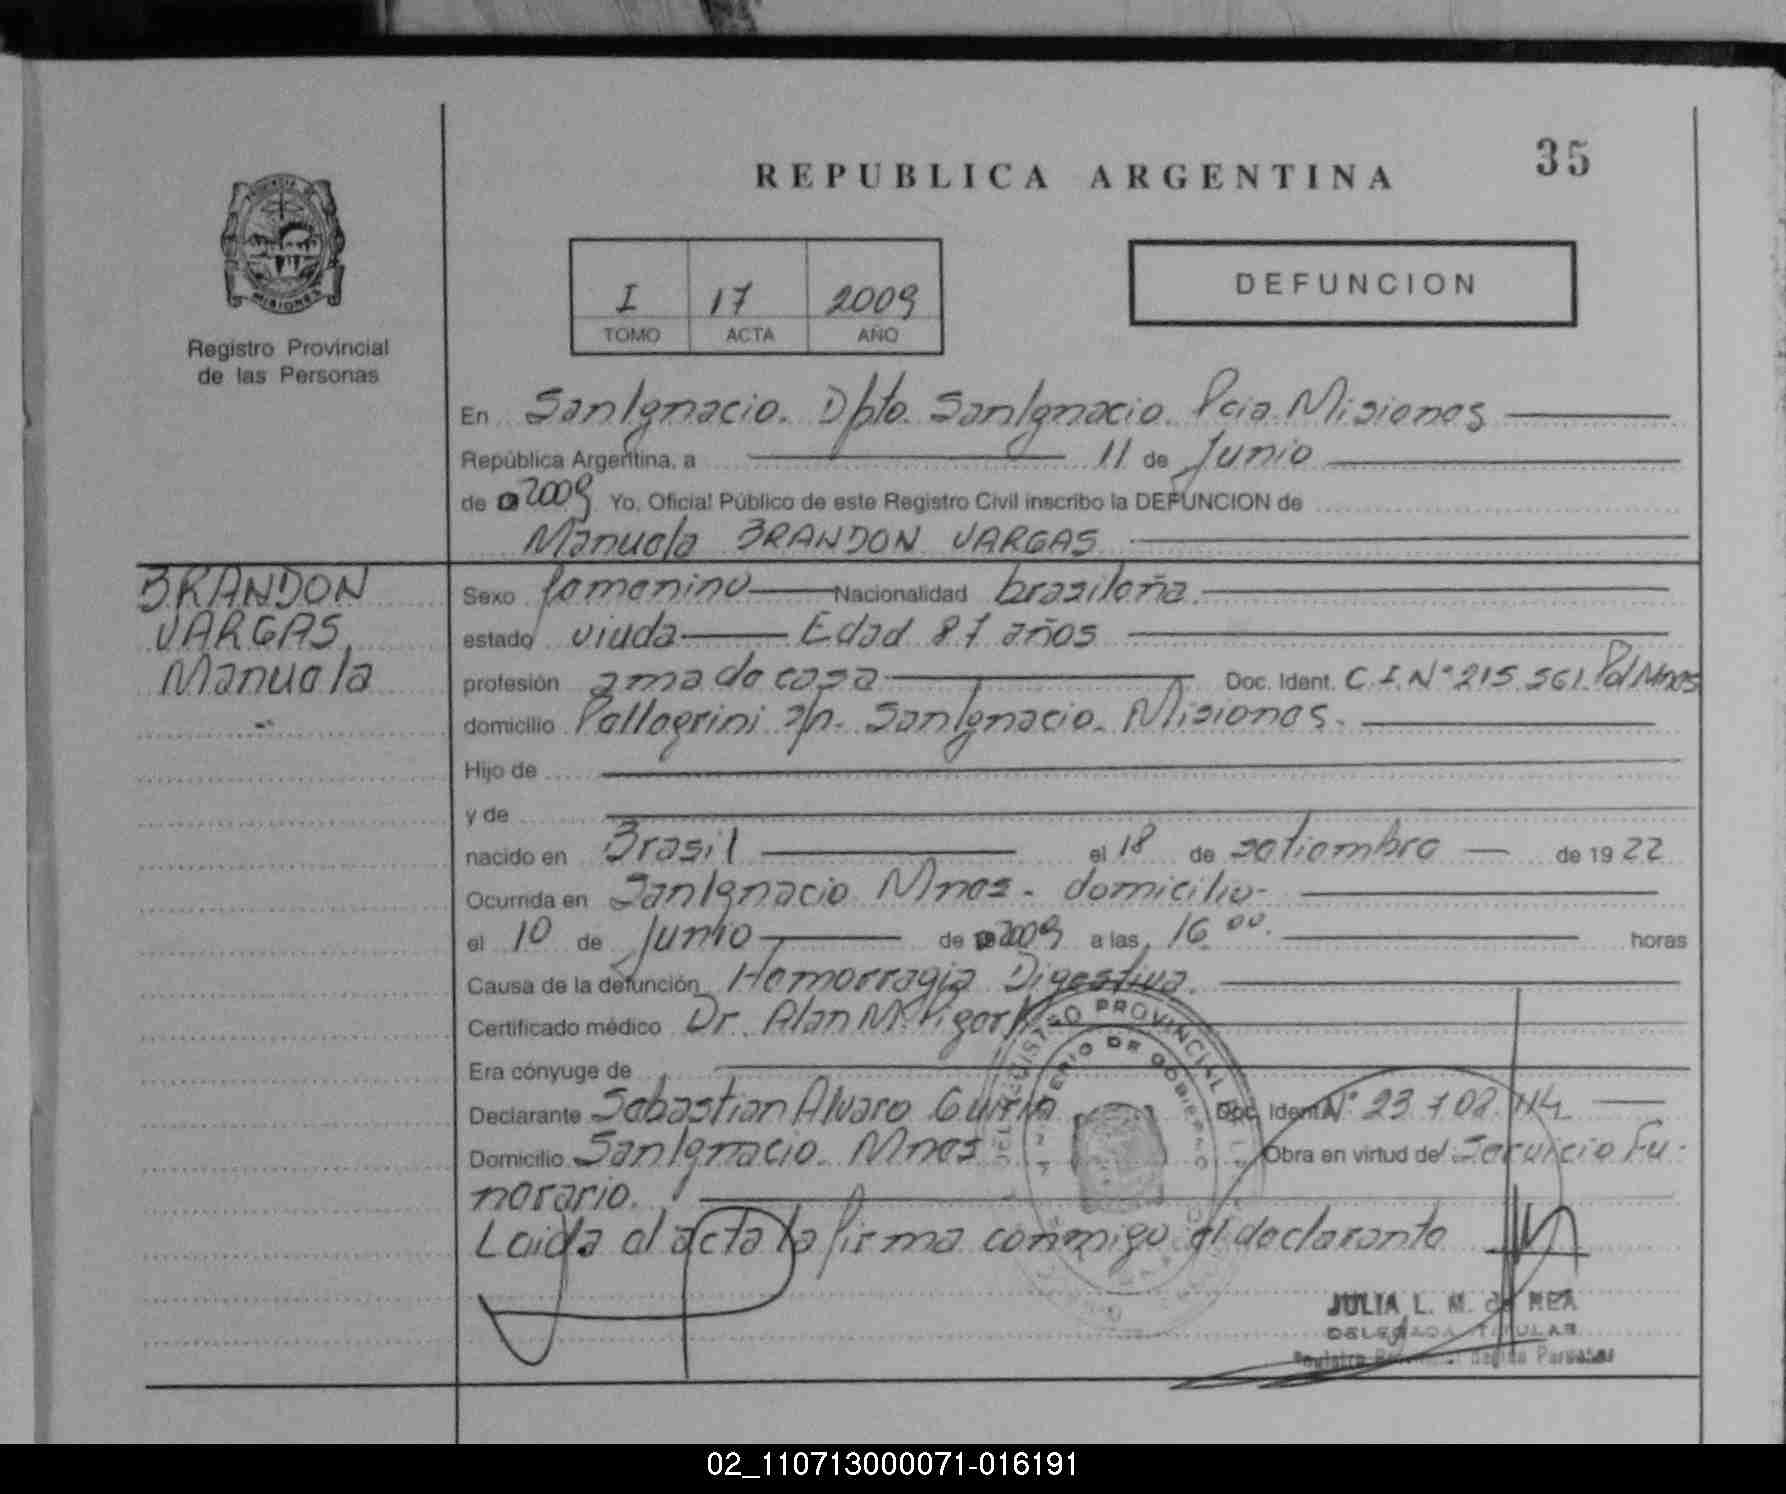 REPUBLICA ARGENTINA 35
PROVINCIA DE
MISIONES
Registro Provincial
de las Personas
I 17 2009
TOMO ACTA AÑO
DEFUNCION
En San Ignacio. Dpto. San Ignacio. Pcia. Misiones
República Argentina, a 11 de Junio
de 2009 Yo, Oficial Público de este Registro Civil inscribo la DEFUNCION de
Manuela BRANDON VARGAS
BRANDON
VARGAS,
Manuela
Sexo femenino Nacionalidad brasileña.
estado viuda Edad 87 años
profesión ama de casa Doc. Ident. C.I.N° 215.561. Pol Mnes
domicilio Pellegrini s/n. San Ignacio. Misiones.
Hijo de
y de
nacido en Brasil el 18 de setiembre de 19 22
Ocurrida en San Ignacio Mnes. domicilio-
el 10 de Junio de 2009 a las 16 00. horas
Causa de la defunción Hemorragia Digestiva.
Certificado médico Dr. Alan M.
Era cónyuge de
Declarante Sebastian Alvaro Doc. Ident. N° 23.702.114
Domicilio San Ignacio. Mnes Obra en virtud de Servicio Fu-
nerario.
Leida el acta la firma conmigo el declarante
REGISTRO PROVINCIAL DE LA
MINISTERIO DE GOBIERNO
JULIA L. M. de REA
DELEGADA TITULAR
Registro Provincial de las Personas
02_110713000071-016191